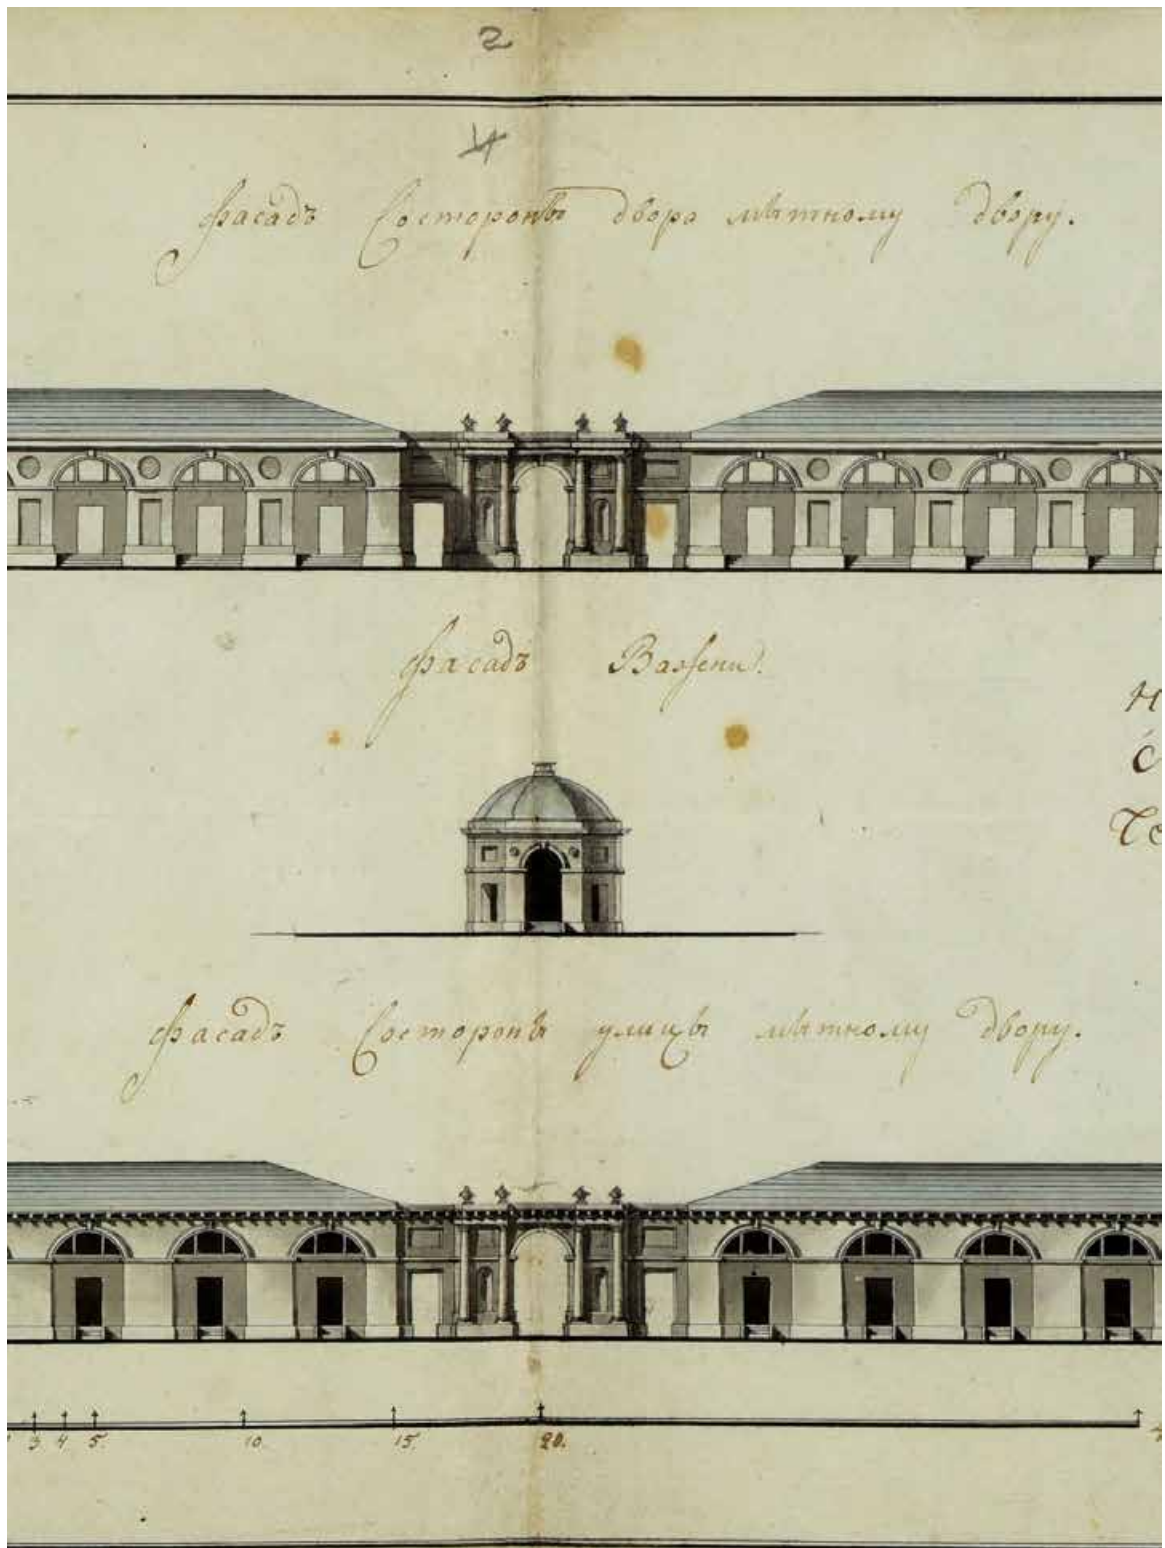 2
4
фасадъ Состороны двора мытному двору.
фасадъ Важени.
фасадъ Состороны улицы мытному двору.
3 4 5. 10. 15. 20.